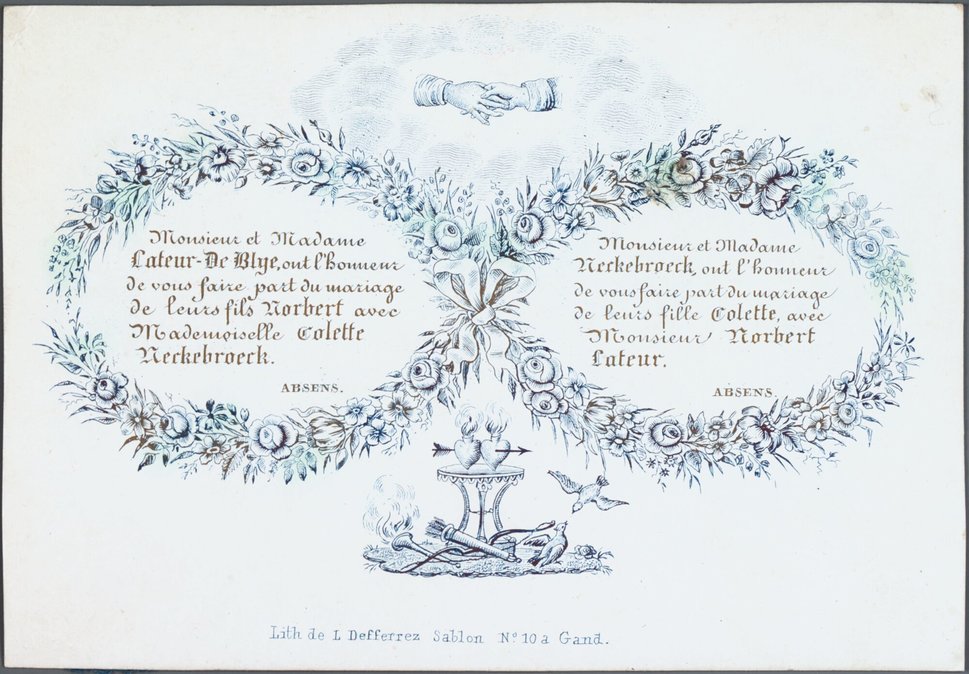 Monsieur et Madame
Lateur-De Blye, ont l'honneur
de vous faire part du mariage
de leurs fils Norbert avec
Mademoiselle Colette
Neckebroeck.
ABSENS.
Monsieur et Madame
Neckebroeck, ont l'honneur
de vous faire part du mariage
de leurs fille Colette, avec
Monsieur Norbert
Lateur.
ABSENS.
Lith de L Defferrez Sablon Nº 10 a Gand.